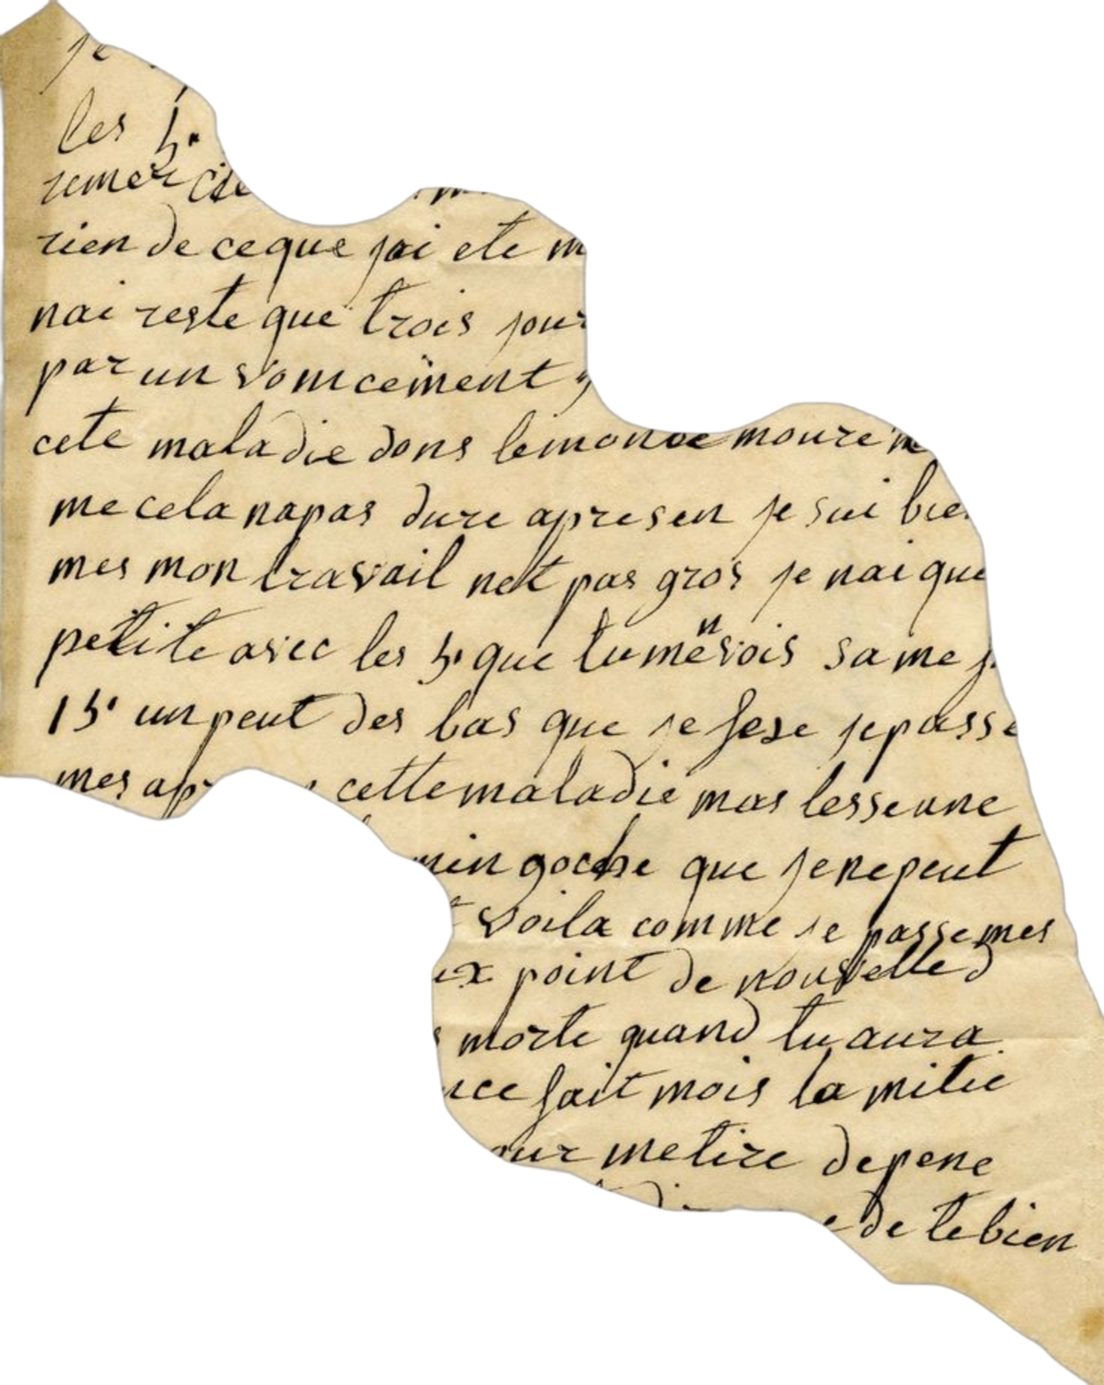 je
les 5.
remercie
rien de ceque jai ete m
nai reste que trois jour
par un vomicement
cete maladie dons lemonde moure
me cela napas dure apresen je sui bien
mes mon travail net pas gros je nai que
petite avec les 5. que tu me n vois sa me
15. un peut des bas que je fese je passe
mes ap cette maladie mas lesse une
min goche que je ne peut
voila comme je passe mes
ex point de nouvelle d
morte quand tu aura
nce fait mois la mitie
our me tire de pene
de te bien